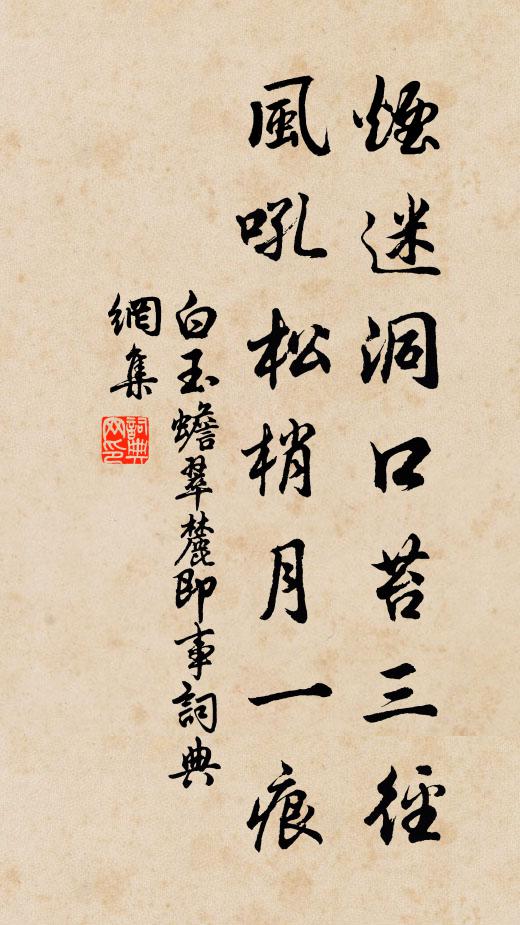 煙迷洞口苔三徑
風吼松梢月一痕
白玉蟾翠麓即事詞典
網集
詞典网印